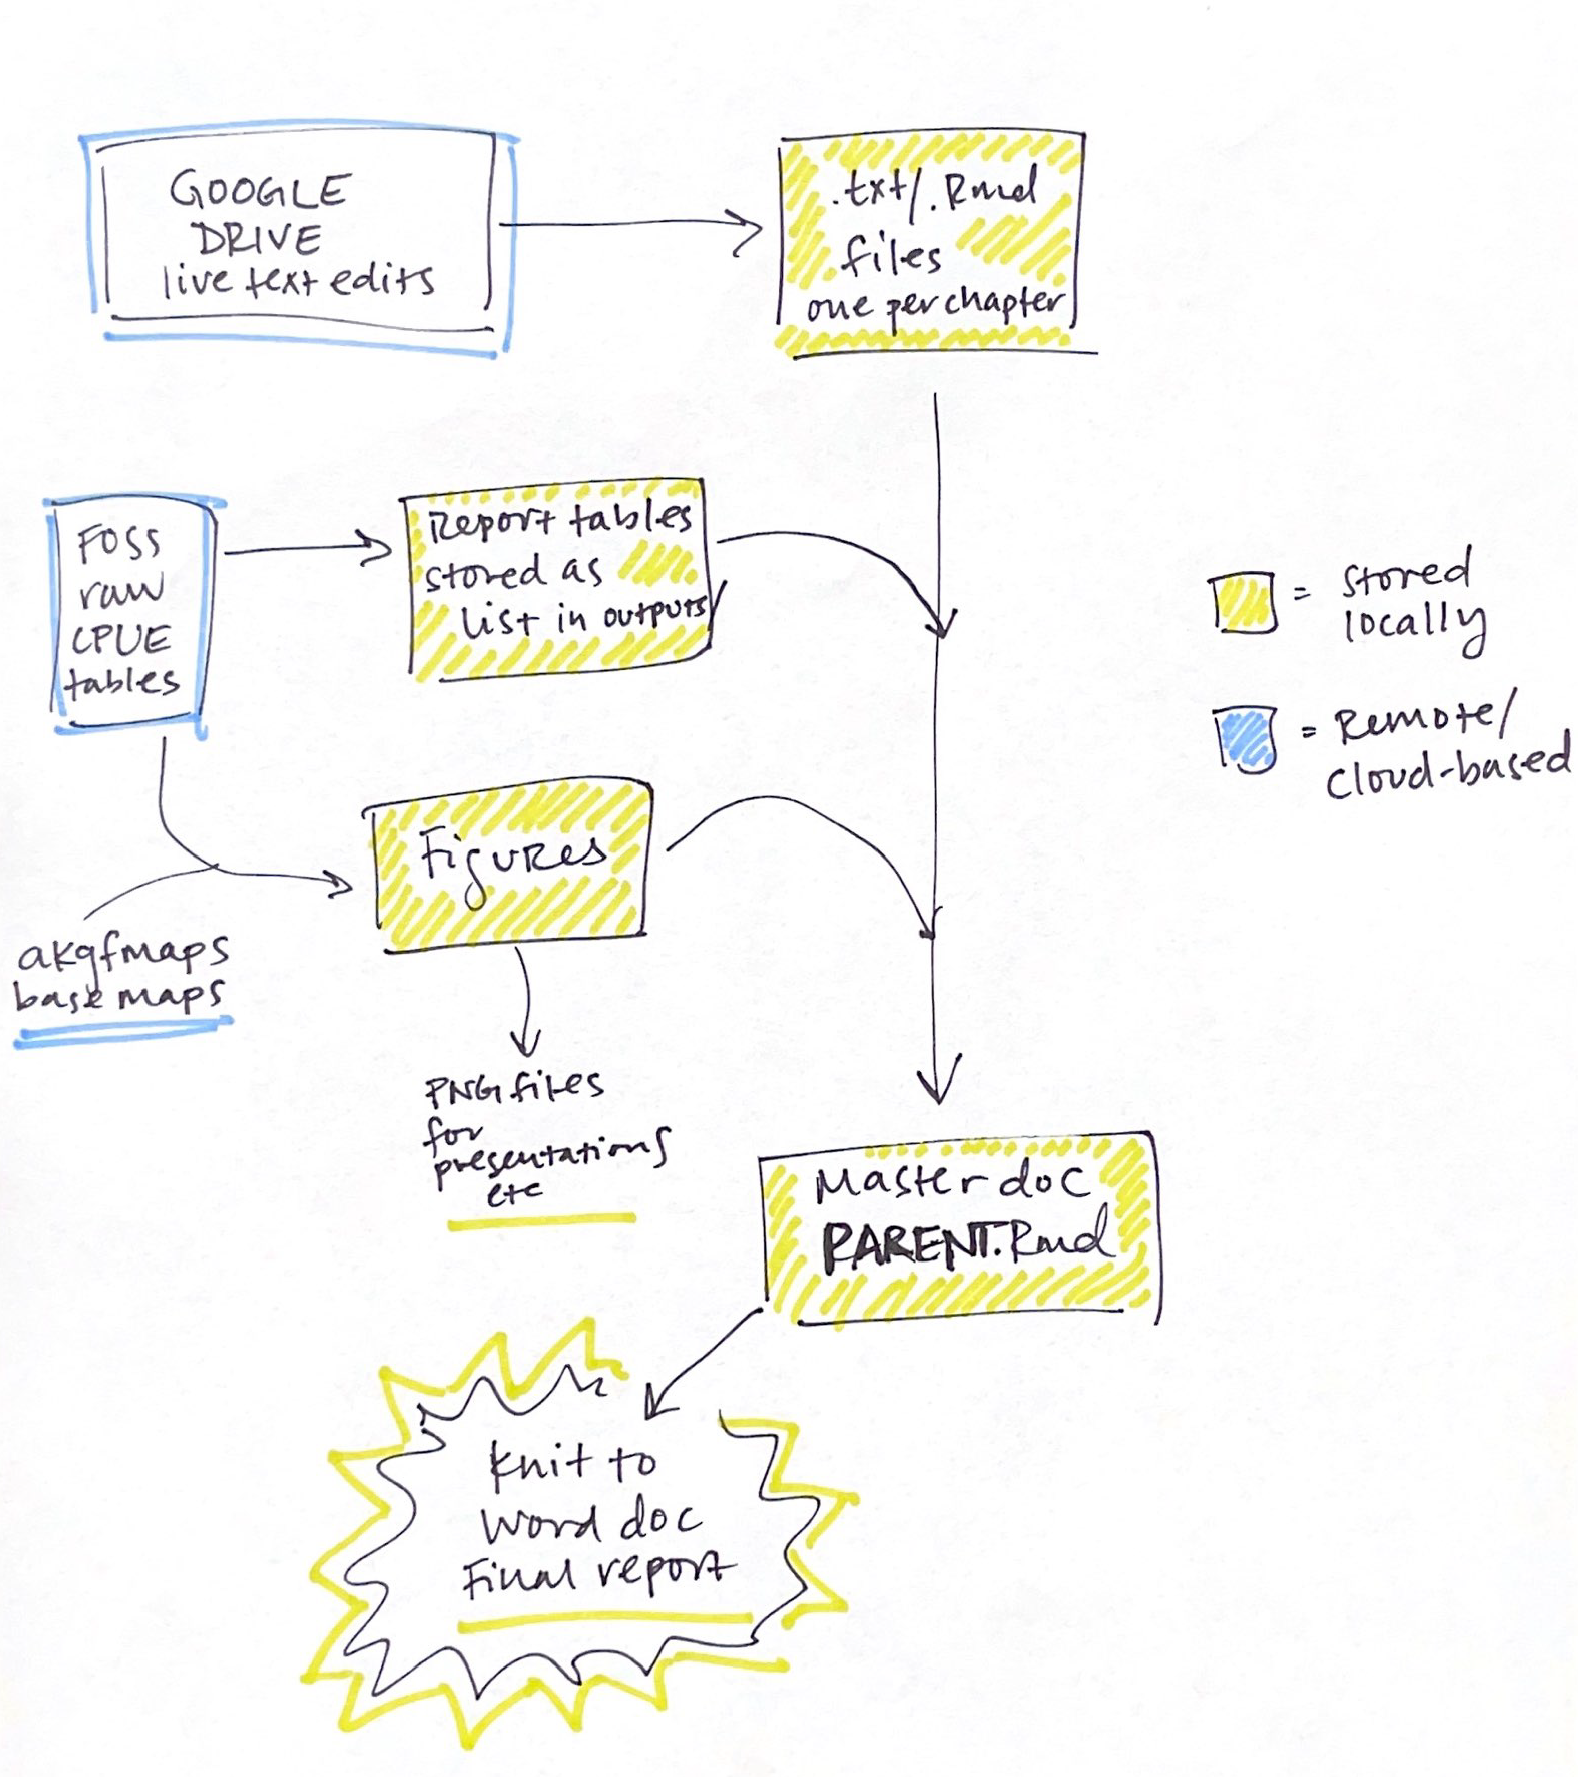 GOOGLE
DRIVE
live text edits
.txt/.Rmd
files
one per chapter
FOSS
raw
CPUE
tables
Report tables
stored as
list in outputs
= Stored
locally
= Remote/
cloud-based
Figures
akgfmaps
base maps
PNG files
for
presentations
etc
Master doc
PARENT.Rmd
Knit to
Word doc
Final report